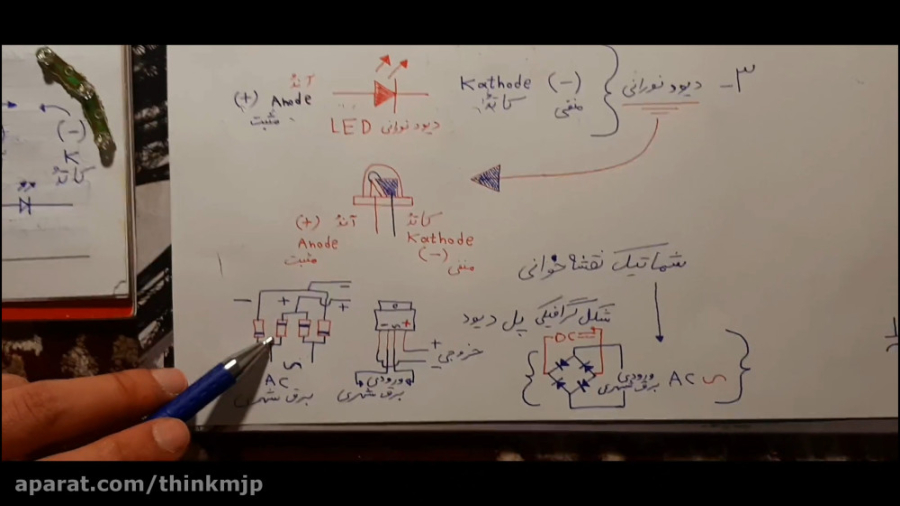 ۳- دیود نورانی
Kathode (-)
کاتد منفی
آند
(+) Anode
مثبت
LED دیود نورانی
(+) آند
Anode
مثبت
کاتد
Kathode
(-) منفی
شماتیک نقشه خوانی
شکل گرافیکی پل دیود
DC
ورودی
برق شهری
AC ~
- + - +
- ~ +
+ خروجی -
ورودی
برق شهری
~
AC
برق شهری
(-)
K
کاتد
aparat.com/thinkmjp